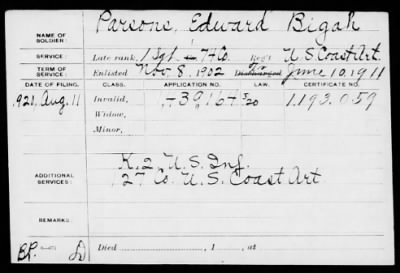 NAME OF SOLDIER: Parsons, Edward Bigah
SERVICE: Late rank, 1 Sgt. 74 Co. Reg't U.S. Coast Art.
TERM OF SERVICE: Enlisted Nov. 8, 1902 Discharged June 10, 1911
DATE OF FILING. CLASS. APPLICATION NO. LAW. CERTIFICATE NO.
1921, Aug. 11 Invalid, 1.193.059
Widow,
Minor,
ADDITIONAL SERVICES: K. 2, U.S. Inf.
127 Co. U.S. Coast Art
REMARKS:
Died , 1 , at